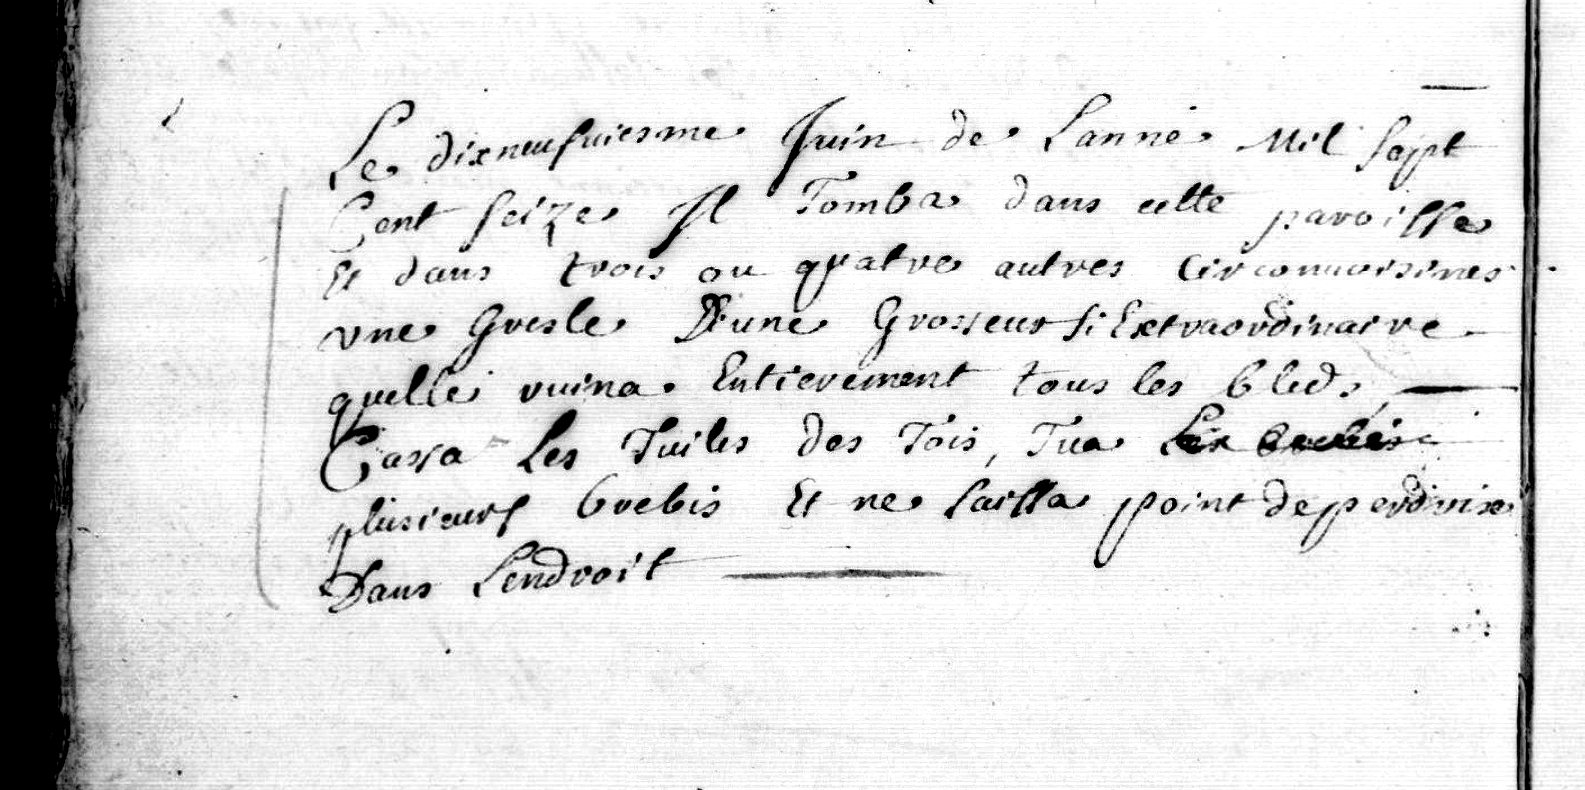 Le dixneufuiesme Juin de Lanné Mil sept
Cent seize Il Tomba dans cette paroisse
Et dans trois ou quatre autres circonuoisines
vne Gresle D'une Grosseur si Extraordinaire
quelle ruina Entierement tous les bleds,
Cassa Les Tuiles des Tois, Tua Les
plusieurs brebis Et ne laissa point de perdrix
Dans Lendroit